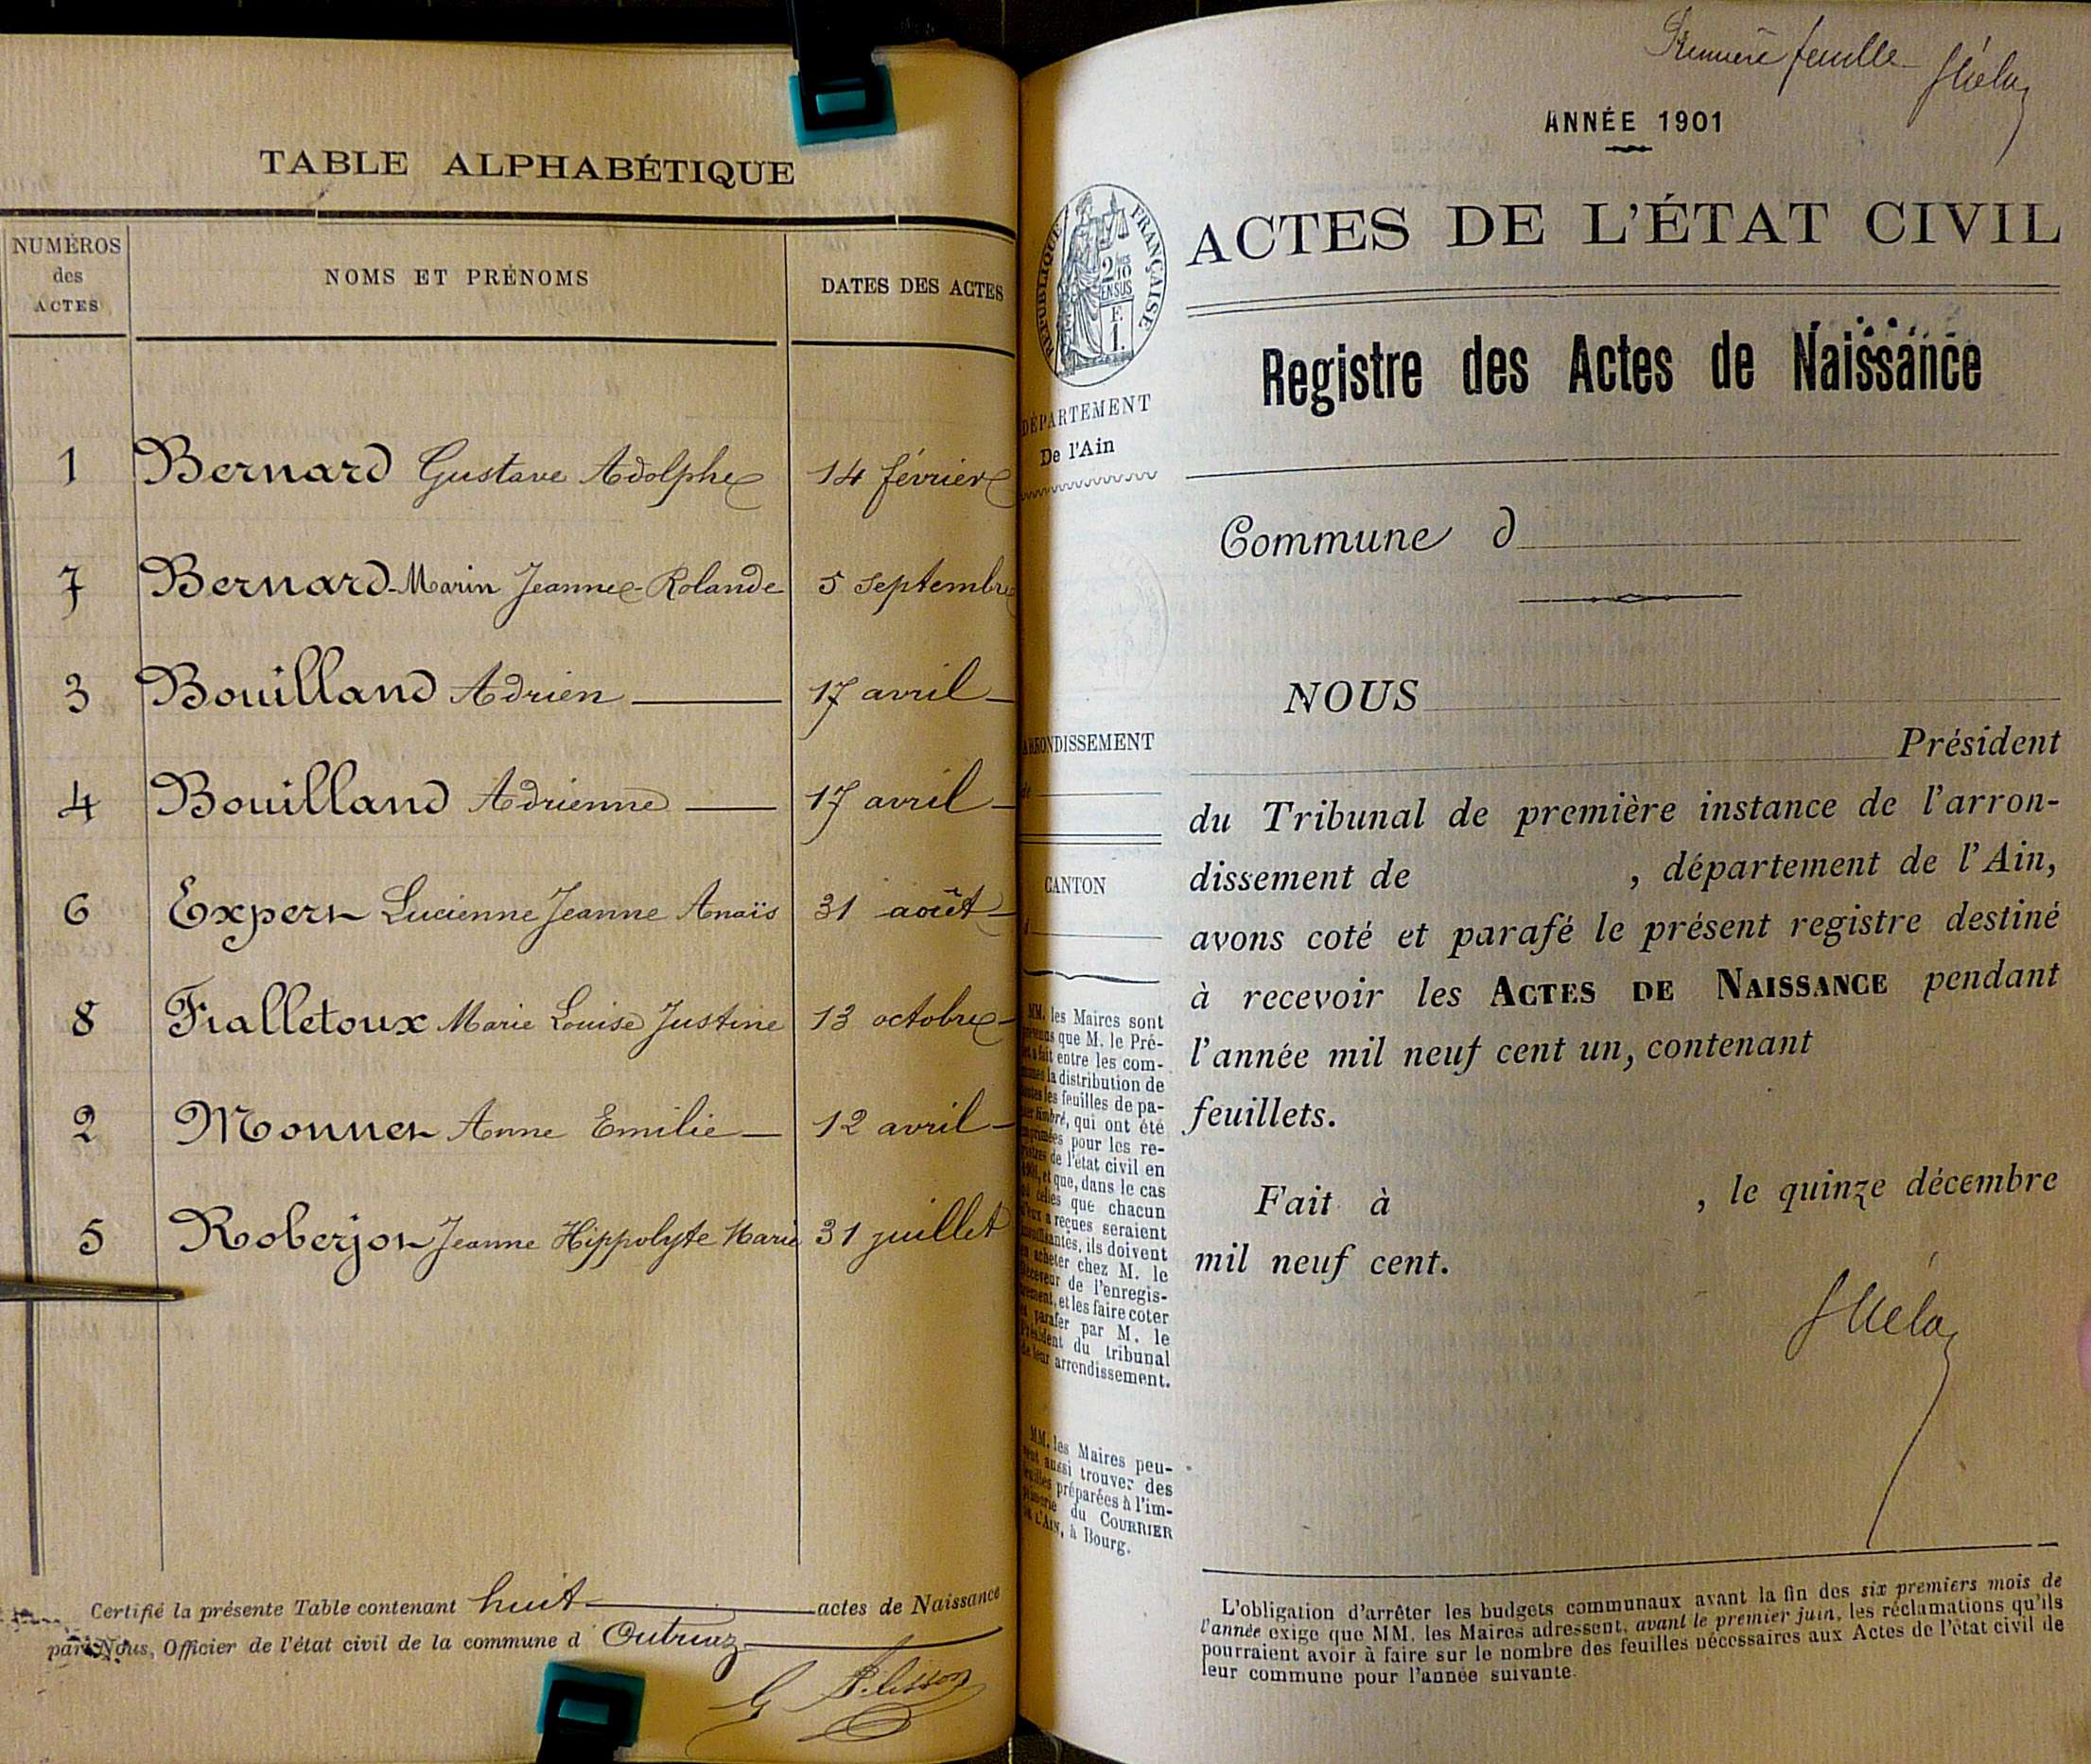 TABLE ALPHABÉTIQUE
NUMÉROS
des
ACTES
NOMS ET PRÉNOMS
DATES DES ACTES
1 Bernard Gustave Adolphe 14 février
7 Bernard-Marin Jeanne-Rolande 5 septembre
3 Bouilland Adrien 17 avril
4 Bouilland Adrienne 17 avril
6 Expert Lucienne Jeanne Anaïs 31 août
8 Fralletoux Marie Louise Justine 13 octobre
2 Monnet Anne Emilie 12 avril
5 Roberjot Jeanne Hippolyte Marie 31 juillet
Certifié la présente Table contenant huit actes de Naissance
par Nous, Officier de l'état civil de la commune d Outriaz
Première feuille
ANNÉE 1901
RÉPUBLIQUE FRANÇAISE
2/10
EN SUS
F.
1.
ACTES DE L'ÉTAT CIVIL
Registre des Actes de Naissance
DÉPARTEMENT
De l'Ain
Commune d
ARRONDISSEMENT
de
CANTON
d
MM. les Maires sont
prévenus que M. le Pré-
fet a fait entre les com-
munes la distribution de
toutes les feuilles de pa-
pier timbré, qui ont été
imprimées pour les re-
gistres de l'état civil en
1901, et que, dans le cas
où celles que chacun
d'eux a reçues seraient
insuffisantes, ils doivent
en acheter chez M. le
Receveur de l'enregis-
trement, et les faire coter
et parafer par M. le
Président du tribunal
de leur arrondissement.
MM. les Maires peu-
vent aussi trouver des
feuilles préparées à l'im-
primerie du COURRIER
DE L'AIN, à Bourg.
NOUS
Président
du Tribunal de première instance de l'arron-
dissement de , département de l'Ain,
avons coté et parafé le présent registre destiné
à recevoir les ACTES DE NAISSANCE pendant
l'année mil neuf cent un, contenant
feuillets.
Fait à , le quinze décembre
mil neuf cent.
L'obligation d'arrêter les budgets communaux avant la fin des six premiers mois de
l'année exige que MM. les Maires adressent, avant le premier juin, les réclamations qu'ils
pourraient avoir à faire sur le nombre des feuilles nécessaires aux Actes de l'état civil de
leur commune pour l'année suivante.